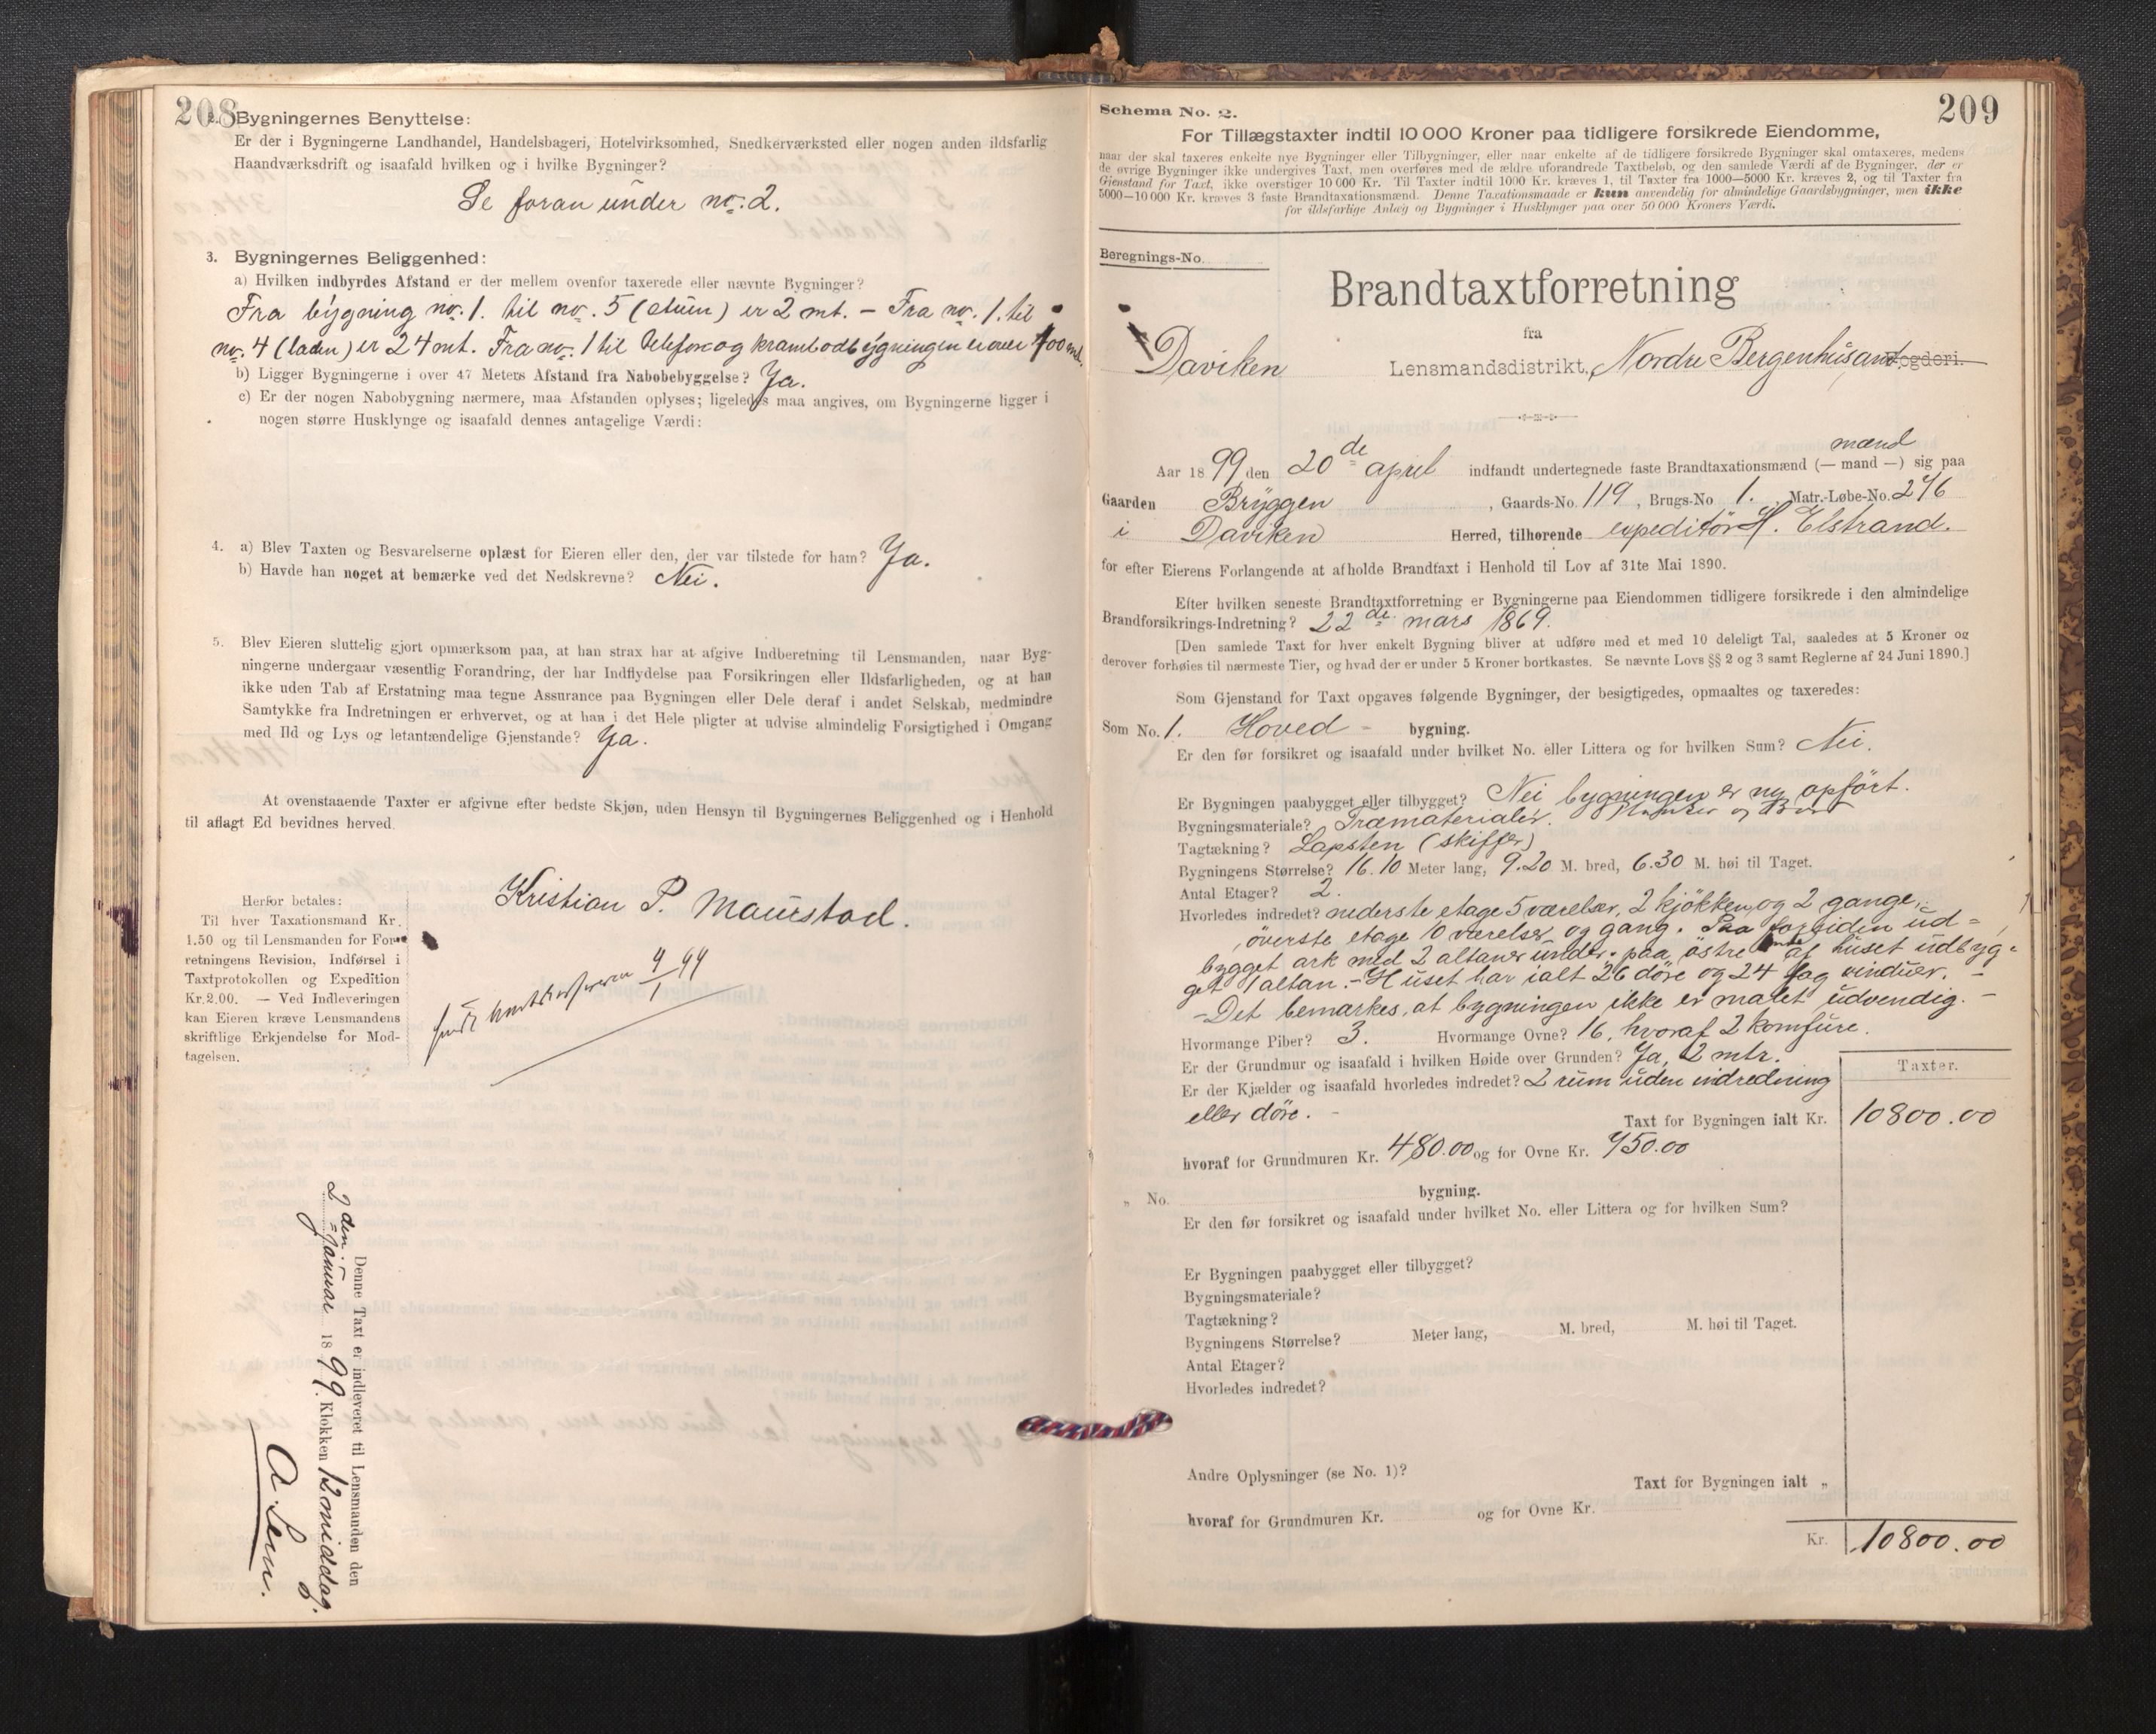 208
2. Bygningernes Benyttelse:
Er der i Bygningerne Landhandel, Handelsbageri, Hotelvirksomhed, Snedkerværksted eller nogen anden ildsfarlig
Haandværksdrift og isaafald hvilken og i hvilke Bygninger?
Se foran under no. 2.
3. Bygningernes Beliggenhed:
a) Hvilken indbyrdes Afstand er der mellem ovenfor taxerede eller nævnte Bygninger?
Fra bygning no. 1. til no. 5 (stuen) er 2 mt. – Fra no. 1. til
no. 4 (laden) er 24 mt. Fra no. 1 til telefon og krambodbygningen er over 100 mt.
b) Ligger Bygningerne i over 47 Meters Afstand fra Nabobebyggelse? Ja.
c) Er der nogen Nabobygning nærmere, maa Afstanden oplyses; ligeledes maa angives, om Bygningerne ligger i
nogen større Husklynge og isaafald dennes antagelige Værdi:
4. a) Blev Taxten og Besvarelserne oplæst for Eieren eller den, der var tilstede for ham? Ja.
b) Havde han noget at bemærke ved det Nedskrevne? Nei.
5. Blev Eieren sluttelig gjort opmærksom paa, at han strax har at afgive Indberetning til Lensmanden, naar Byg-
ningerne undergaar væsentlig Forandring, der har Indflydelse paa Forsikringen eller Ildsfarligheden, og at han
ikke uden Tab af Erstatning maa tegne Assurance paa Bygningen eller Dele deraf i andet Selskab, medmindre
Samtykke fra Indretningen er erhvervet, og at han i det Hele pligter at udvise almindelig Forsigtighed i Omgang
med Ild og Lys og letantændelige Gjenstande? Ja.
At ovenstaaende Taxter er afgivne efter bedste Skjøn, uden Hensyn til Bygningernes Beliggenhed og i Henhold
til aflagt Ed bevidnes herved.
Kristian P. Maurstad.
Herfor betales:
Til hver Taxationsmand Kr.
1.50 og til Lensmanden for For-
retningens Revision, Indførsel i
Taxtprotokollen og Expedition
Kr. 2.00. — Ved Indleveringen
kan Eieren kræve Lensmandens
skriftlige Erkjendelse for Mod-
tagelsen.
Denne Taxt er indleveret til Lensmanden den
2 den januar 1899. Klokken 12 middag.
209
Schema No. 2.
For Tillægstaxter indtil 10 000 Kroner paa tidligere forsikrede Eiendomme,
naar der skal taxeres enkelte nye Bygninger eller Tilbygninger, eller naar enkelte af de tidligere forsikrede Bygninger skal omtaxeres, medens
de øvrige Bygninger ikke undergives Taxt, men overføres med de ældre uforandrede Taxtbeløb, og den samlede Værdi af de Bygninger, der er
Gjenstand for Taxt, ikke overstiger 10 000 Kr. Til Taxter indtil 1000 Kr. kræves 1, til Taxter fra 1000—5000 Kr. kræves 2, og til Taxter fra
5000—10 000 Kr. kræves 3 faste Brandtaxationsmænd. Denne Taxationsmaade er kun anvendelig for almindelige Gaardsbygninger, men ikke
for ildsfarlige Anlæg og Bygninger i Husklynger paa over 50 000 Kroners Værdi.
Beregnings-No.
Brandtaxtforretning
fra
Daviken Lensmandsdistrikt, Nordre Bergenhus amt, Fogderi.
Aar 1899, den 20de april indfandt undertegnede faste Brandtaxationsmænd (— mand —) mænd sig paa
Gaarden Bryggen, Gaards-No. 119, Brugs-No 1., Matr.-Løbe-No. 276
i Daviken Herred, tilhørende expeditör H. Elstrand.
for efter Eierens Forlangende at afholde Brandtaxt i Henhold til Lov af 31te Mai 1890.
Efter hvilken seneste Brandtaxtforretning er Bygningerne paa Eiendommen tidligere forsikrede i den almindelige
Brandforsikrings-Indretning? 22de mars 1869.
[Den samlede Taxt for hver enkelt Bygning bliver at udføre med et med 10 deleligt Tal, saaledes at 5 Kroner og
derover forhøies til nærmeste Tier, og hvad der er under 5 Kroner bortkastes. Se nævnte Lovs §§ 2 og 3 samt Reglerne af 24 Juni 1890.]
Som Gjenstand for Taxt opgaves følgende Bygninger, der besigtigedes, opmaaltes og taxeredes:
Som No. 1. Hoved- bygning.
Er den før forsikret og isaafald under hvilket No. eller Littera og for hvilken Sum? Nei.
Er Bygningen paabygget eller tilbygget? Nei bygningen er ny opfört.
Bygningsmateriale? Træmaterialer.
Tagtækning? Lapsten (skiffer)
Bygningens Størrelse? 16.10 Meter lang, 9.20 M. bred, 6.30 M. høi til Taget.
Antal Etager? 2.
Hvorledes indredet? nederste etage 5 værelser, 2 kjökken, og 2 gange,
överste etage 10 værelser og gang. Paa forsiden ud-
bygget ark med 2 altaner under. paa östre ende af huset udbyg-
get 1 altan. – Huset har ialt 26 döre og 24 fag vinduer. –
– Det bemarkes, at bygningen ikke er malet udvendig. –
Hvormange Piber? 3. Hvormange Ovne? 16, hvoraf 2 komfure.
Er der Grundmur og isaafald i hvilken Høide over Grunden? Ja, 2 mtr.
Er der Kjælder og isaafald hvorledes indredet? 2 rum uden indredning
eller döre. –
Taxter.
Taxt for Bygningen ialt Kr. 10800.00
hvoraf for Grundmuren Kr. 480.00 og for Ovne Kr. 750.00
„ No. bygning.
Er den før forsikret og isaafald under hvilket No. eller Littera og for hvilken Sum?
Er Bygningen paabygget eller tilbygget?
Bygningsmateriale?
Tagtækning?
Bygningens Størrelse? Meter lang, M. bred, M. høi til Taget.
Antal Etager?
Hvorledes indredet?
Andre Oplysninger (se No. 1)?
Taxt for Bygningen ialt „
hvoraf for Grundmuren Kr. og for Ovne Kr.
Kr. 10800.00